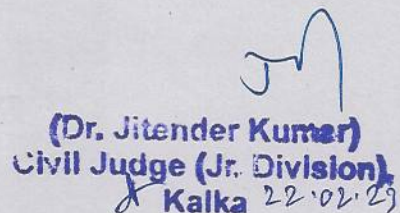 (Dr. Jitender Kumar)
Civil Judge (Jr. Division),
Kalka 22.02.23